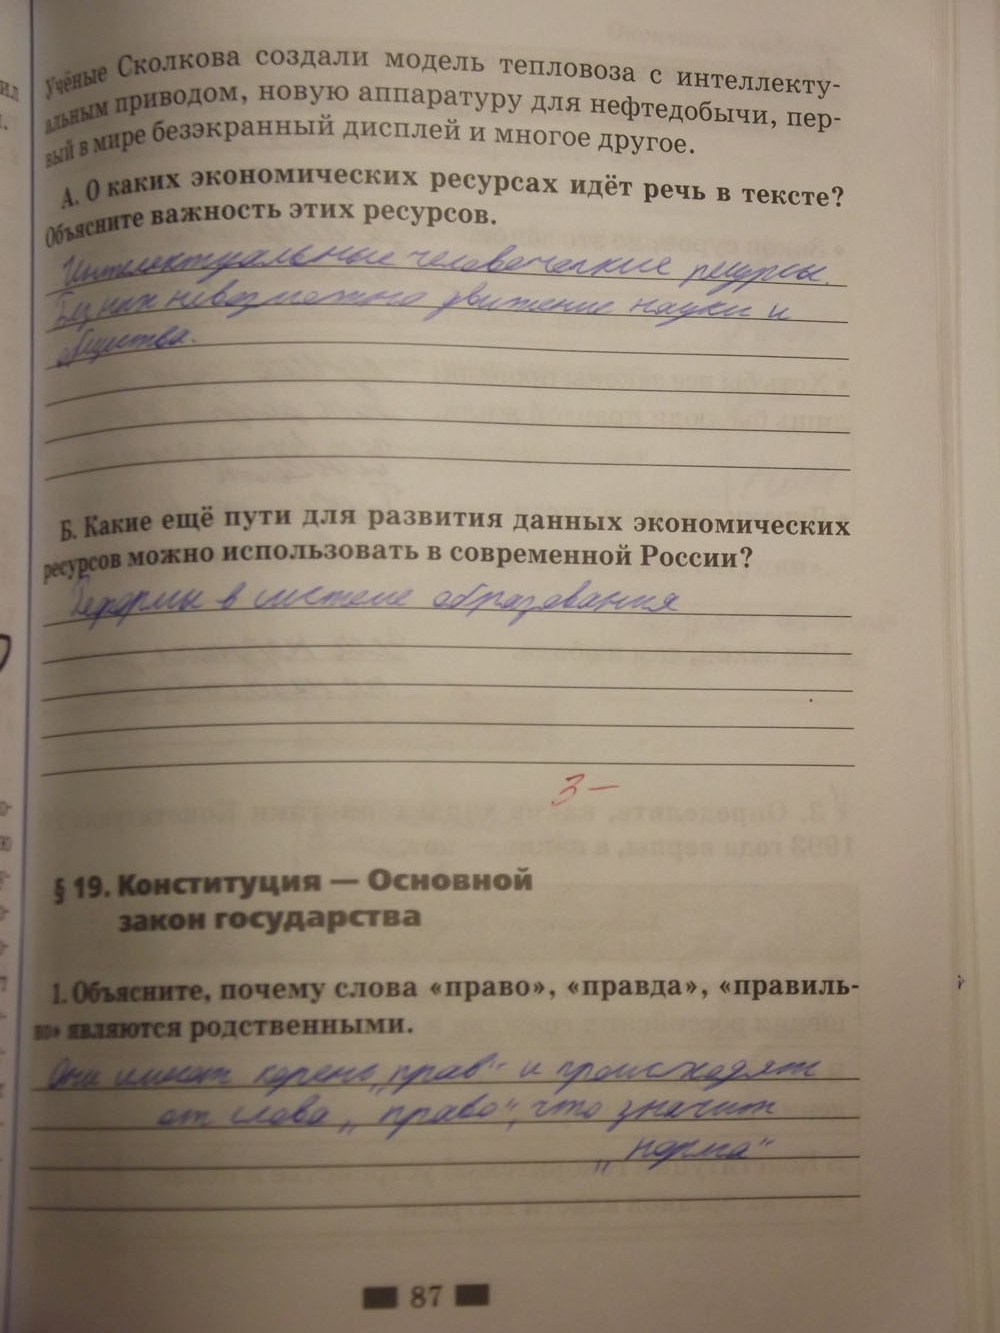 Учёные Сколкова создали модель тепловоза с интеллекту-
альным приводом, новую аппаратуру для нефтедобычи, пер-
вый в мире безэкранный дисплей и многое другое.
А. О каких экономических ресурсах идёт речь в тексте?
Объясните важность этих ресурсов.
Интелектуальные человеческие ресурсы.
Без них невозможно движение науки и
общества.
Б. Какие ещё пути для развития данных экономических
ресурсов можно использовать в современной России?
Реформы в системе образования
3–
§ 19. Конституция — Основной
закон государства
1. Объясните, почему слова «право», «правда», «правиль-
но» являются родственными.
Они имеют корень „прав" и происходят
от слова „право", что значит
„норма"
87